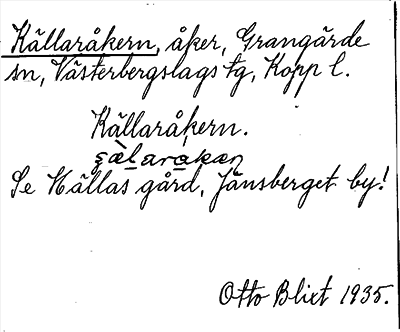 Källaråkern, åker, Grangärde
sn, Västerbergslags tg, Kopp l.
Källaråkern.
şàlarakən
Se Hällas gård, Jänsberget by!
Otto Blixt 1935.